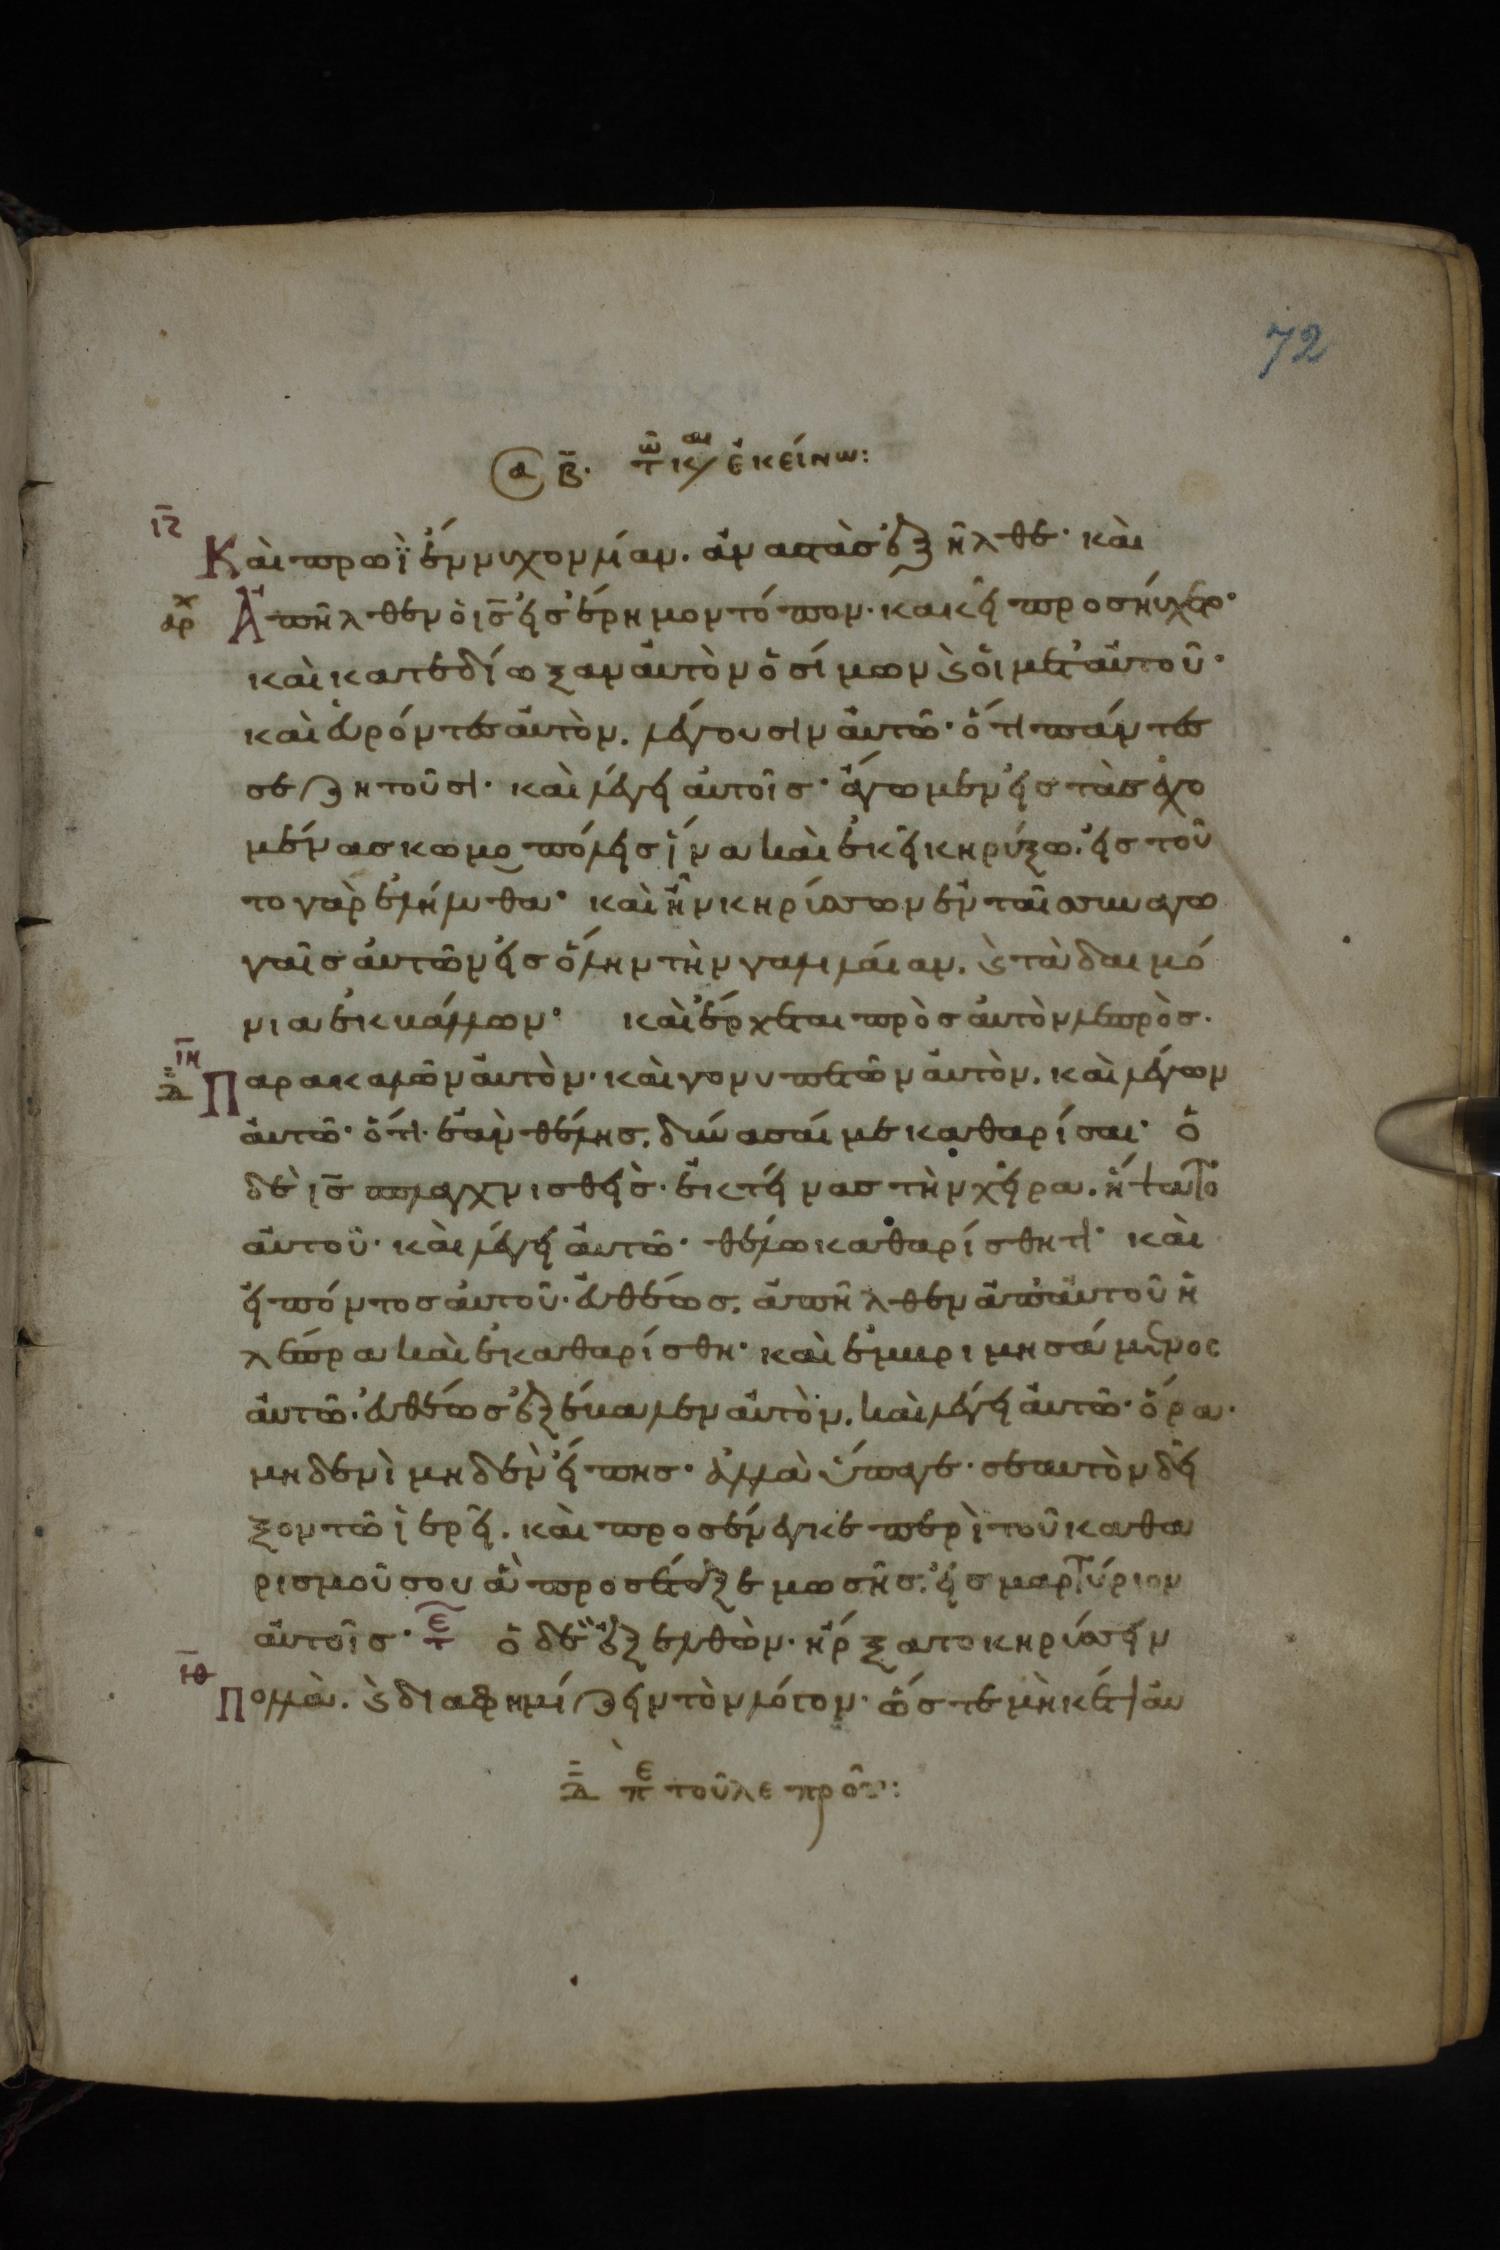 72
α β̅· τῶ καιῶ ἐκείνω:
ιϛ̅
Καὶ πρωῒ ἔννυχον λίαν. ἀναστὰσ ἐξῆλθε· καὶ
αρχ Ἀπῆλθεν ὁ ισ̅ εἰσ ἔρημον τόπον· κακεῖ προσηύχετο·
καὶ κατεδίωξαν αὐτὸν ὁ σίμων ϗ οἱ μετ' αὐτοῦ·
καὶ εὑρόντεσ αὐτὸν. λέγουσιν αὐτῶ· ὅτι πάντεσ
σε ζητοῦσι· καὶ λέγει αὐτοῖσ· ἄγωμεν εἰσ τὰσ ἐχο
μένασ κωμοπόλεισ ἵνα καὶ ἐκεῖ κηρύξω. εἰσ τοῦ
το γὰρ ἐλήλυθα· καὶ ἦν κηρύσσων ἐν ταῖσ συναγω
γαῖσ αὐτῶν εἰσ ὅλην τὴν γαλιλαίαν. ϗ τὰ δαιμό
νια ἐκβάλλων· καὶ ἔρχεται πρὸσ αὐτὸν λεπρὸσ.
ιη̅
λ̅ Παρακαλῶν αὐτὸν· καὶ γονυπετῶν αὐτὸν. καὶ λέγων
αὐτῶ· ὅτι ἐὰν θέλησ. δύνασαί με καθαρίσαι· ὁ
δὲ ισ̅ σπλαγχνισθεὶσ· ἐκτείνασ τὴν χεῖρα. ἥψατο
αὐτοῦ· καὶ λέγει αὐτῶ· θέλω καθαρίσθητι· καὶ
εἰπόντοσ αὐτοῦ· εὐθέωσ. ἀπῆλθεν ἀπ' αὐτοῦ ἡ
λέπρα καὶ ἐκαθαρίσθη· καὶ ἐμβριμησάμενος
αὐτῶ· εὐθέωσ ἐξέβαλεν αὐτὸν. καὶ λέγει αὐτῶ· ὅρα·
μηδενὶ μηδὲν εἴπησ· ἀλλὰ ὕπαγε· σεαυτὸν δεῖ
ξον τῶ ἱερεῖ. καὶ προσένεγκε περὶ τοῦ καθα
ρισμοῦ σου ἃ προσέταξε μωσῆσ. εἰσ μαρτύριον
αὐτοῖσ· τε ὁ δὲ ἐξελθὼν· ἤρξατο κηρύσσειν
ιθ̅
Πολλὰ. ϗ διαφημίζειν τὸν λόγον· ὥστε μὴκέτι αυ
λ̅ πε τοῦ λεπροῦ: